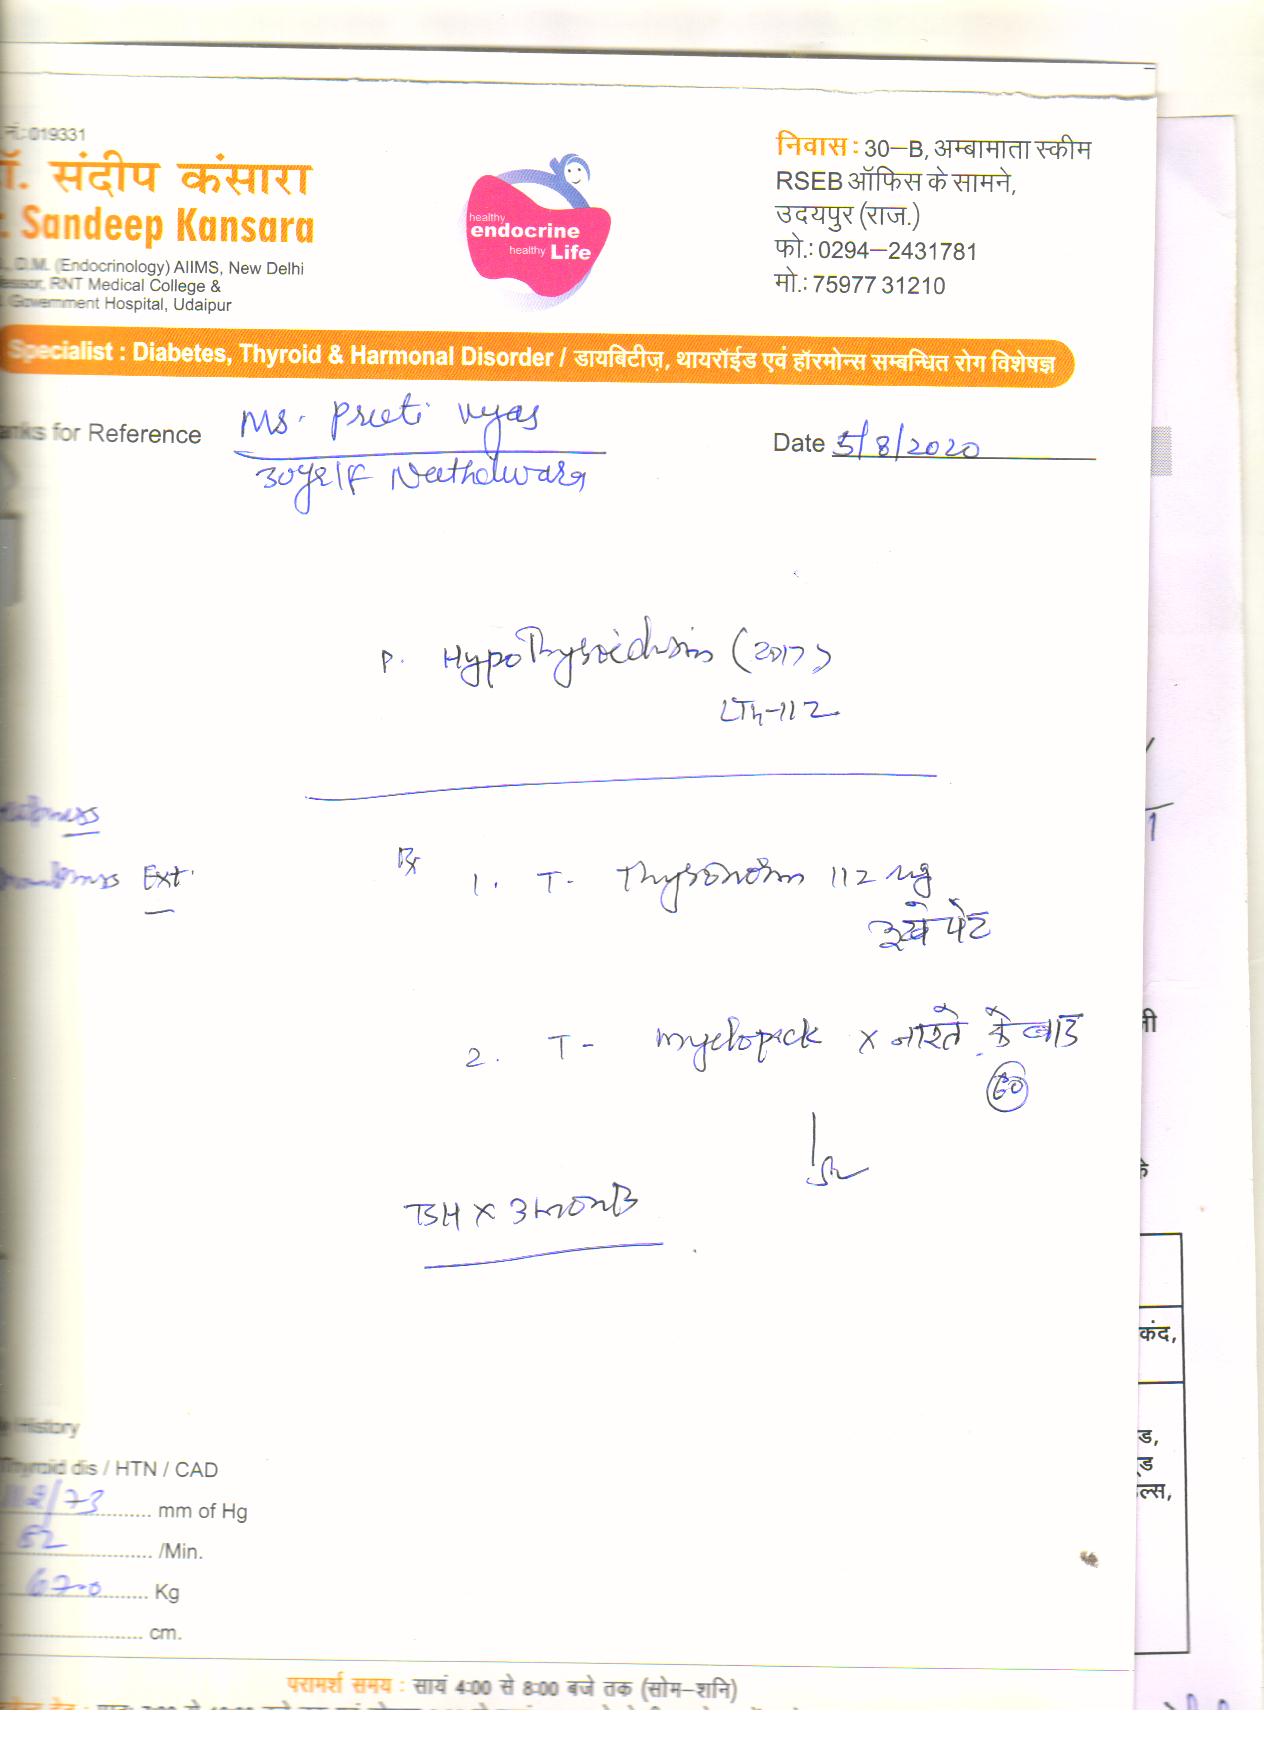 नं.:019331
डॉ. संदीप कंसारा
Sandeep Kansara
D.M. (Endocrinology) AIIMS, New Delhi
RNT Medical College &
Government Hospital, Udaipur
healthy
endocrine
healthy Life
निवास : 30–B, अम्बामाता स्कीम
RSEB ऑफिस के सामने,
उदयपुर (राज.)
फो.: 0294–2431781
मो.: 75977 31210
Specialist : Diabetes, Thyroid & Harmonal Disorder / डायबिटीज़, थायरॉईड एवं हॉरमोन्स सम्बन्धित रोग विशेषज्ञ
for Reference Ms. Preeti Vyas
Date 5/8/2020
30yr/F
P. Hypothyroidism (2017)
LTh-112
Ext.
Rx
1. T- Thyronorm 112 ug
पेट
2. T- myelopack x नाश्ते के बाद
60
TSH x 3 month
History
Thyroid dis / HTN / CAD
112/73 mm of Hg
82 /Min.
67.0 Kg
cm.
कंद,
ड,
ल्स,
परामर्श समय : सायं 4:00 से 8:00 बजे तक (सोम–शनि)